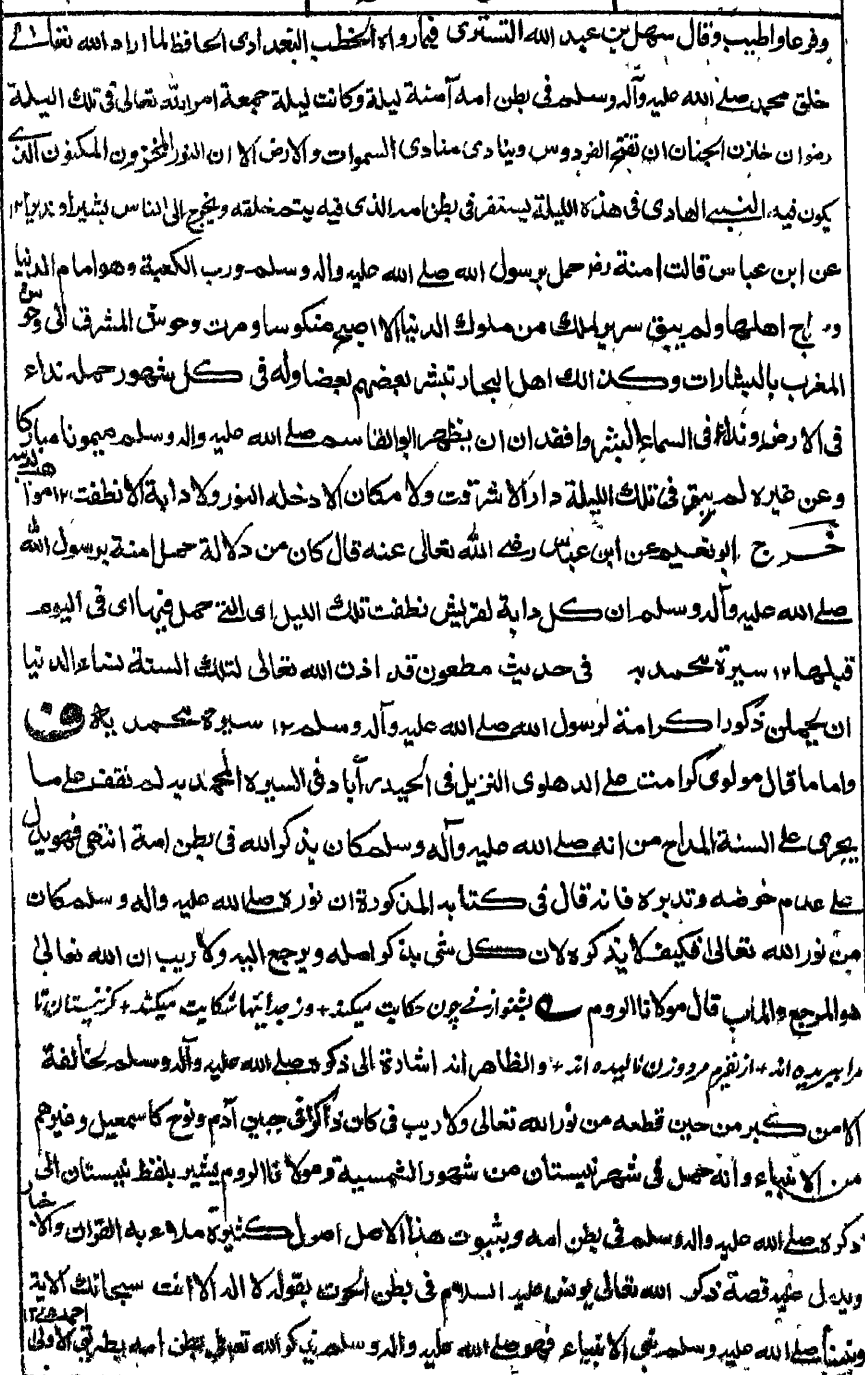 وفرعا واطيب وقال سهل بن عبد الله التستري فيما رواه الخطيب البغدادى الحافظ لما اراد الله تعالى
خلق محمد صلے الله عليه وآله وسلم فى بطن امه آمنة ليلة وكانت ليلة جمعة امر الله تعالى فى تلك الليلة
رضوان خازن الجنان ان تفتح الفردوس وينادى منادى السموات والارض الا ان النور المخزون المكنون الذے
يكون فيه النبے الهادى فى هذه الليلة يستقر فى بطن امه الذى فيه يتم خلقه ويخرج الى الناس بشيرا ونذيرا ١٢
عن ابن عباس قالت امنة رض حمل برسول الله صلے الله عليه واله وسلم ورب الكعبة وهو امام الدنيا
وسراج اهلها ولم يبق سرير لملك من ملوك الدنيا الا اصبح منكوسا ومرت وحوش المشرق الى وحوش
المغرب بالبشارات وكذالك اهل البحار تبشر بعضهم بعضا وله فى كل شهور حمله نداء
فى الارض ونداء فى السماء البشروا فقد ان ان يظهر ابوالقاسم صلے الله عليه واله وسلم ميمونا مباركا
وعن غيره لم يبق فى تلك الليلة دار الا شرقت ولا مكان الا دخله النور ولا دابة الا نطقت ١٢ مواهب لدنيه
خرج ابو نعيم عن ابن عباس رضے الله تعالى عنه قال كان من دلالة حمل امنة برسول الله
صلے الله عليه وآله وسلم ان كل دابة لقريش نطقت تلك الليل اى التے حمل فيها اى فى اليوم
قبلها ١٢ سيرة محمديه فى حديث مطعون قد اذن الله تعالى لتلك السنة نساء الدنيا
ان يحملن ذكورا كرامة لرسول الله صلے الله عليه وآله وسلم ١٢ سيرة محمديه ف
واما ما قال مولوى كرامت على الدهلوى النزيل فى الحيدرآباد فى السيرة المحمديه لم نقف على ما
يجرى على السنة المداح من انه صلے الله عليه وآله وسلم كان يذكر الله فى بطن امه انتهى فهو يدل
على عدم خوضه وتدبره فانه قال فى كتابه المذكورة ان نوره صلے الله عليه واله وسلم كان
من نور الله تعالى فكيف لا يذكره لان كل شى يذكر اصله ويرجع اليه ولا ريب ان الله تعالى
هو المرجع والمآب قال مولانا الروم ے بشنو از نے چون حكايت ميكند + وز جدائيها شكايت ميكند + كز نيستان تا
مرا ببريده اند + از نفيرم مرد وزن ناليده اند + والظاهر انه اشارة الى ذكره صلے الله عليه وآله وسلم لخالقه
الامن كبر من حين قطعه من نور الله تعالى ولا ريب فى كان ذاكرا فى جبين آدم ونوح كا سمعيل وغيرهم
من الانبياء وانه حمل فى شهر نيستان من شهور الشمسية ومولانا الروم يشير بلفظ نيستان الى
ذكره صلے الله عليه واله وسلم فى بطن امه وبثبوت هذا الاصل اصول كثيرة ملاء به القران والاخبار
ويدل عليه قصة ذكر الله تعالى يونس عليه السلام فى بطن الحوت بقوله لا اله الا انت سبحانك الاية
ونبينا صلے الله عليه وسلم نبى الانبياء فهو صلے الله عليه واله وسلم يذكر الله تعالى فى بطن امه بطريق الاولى